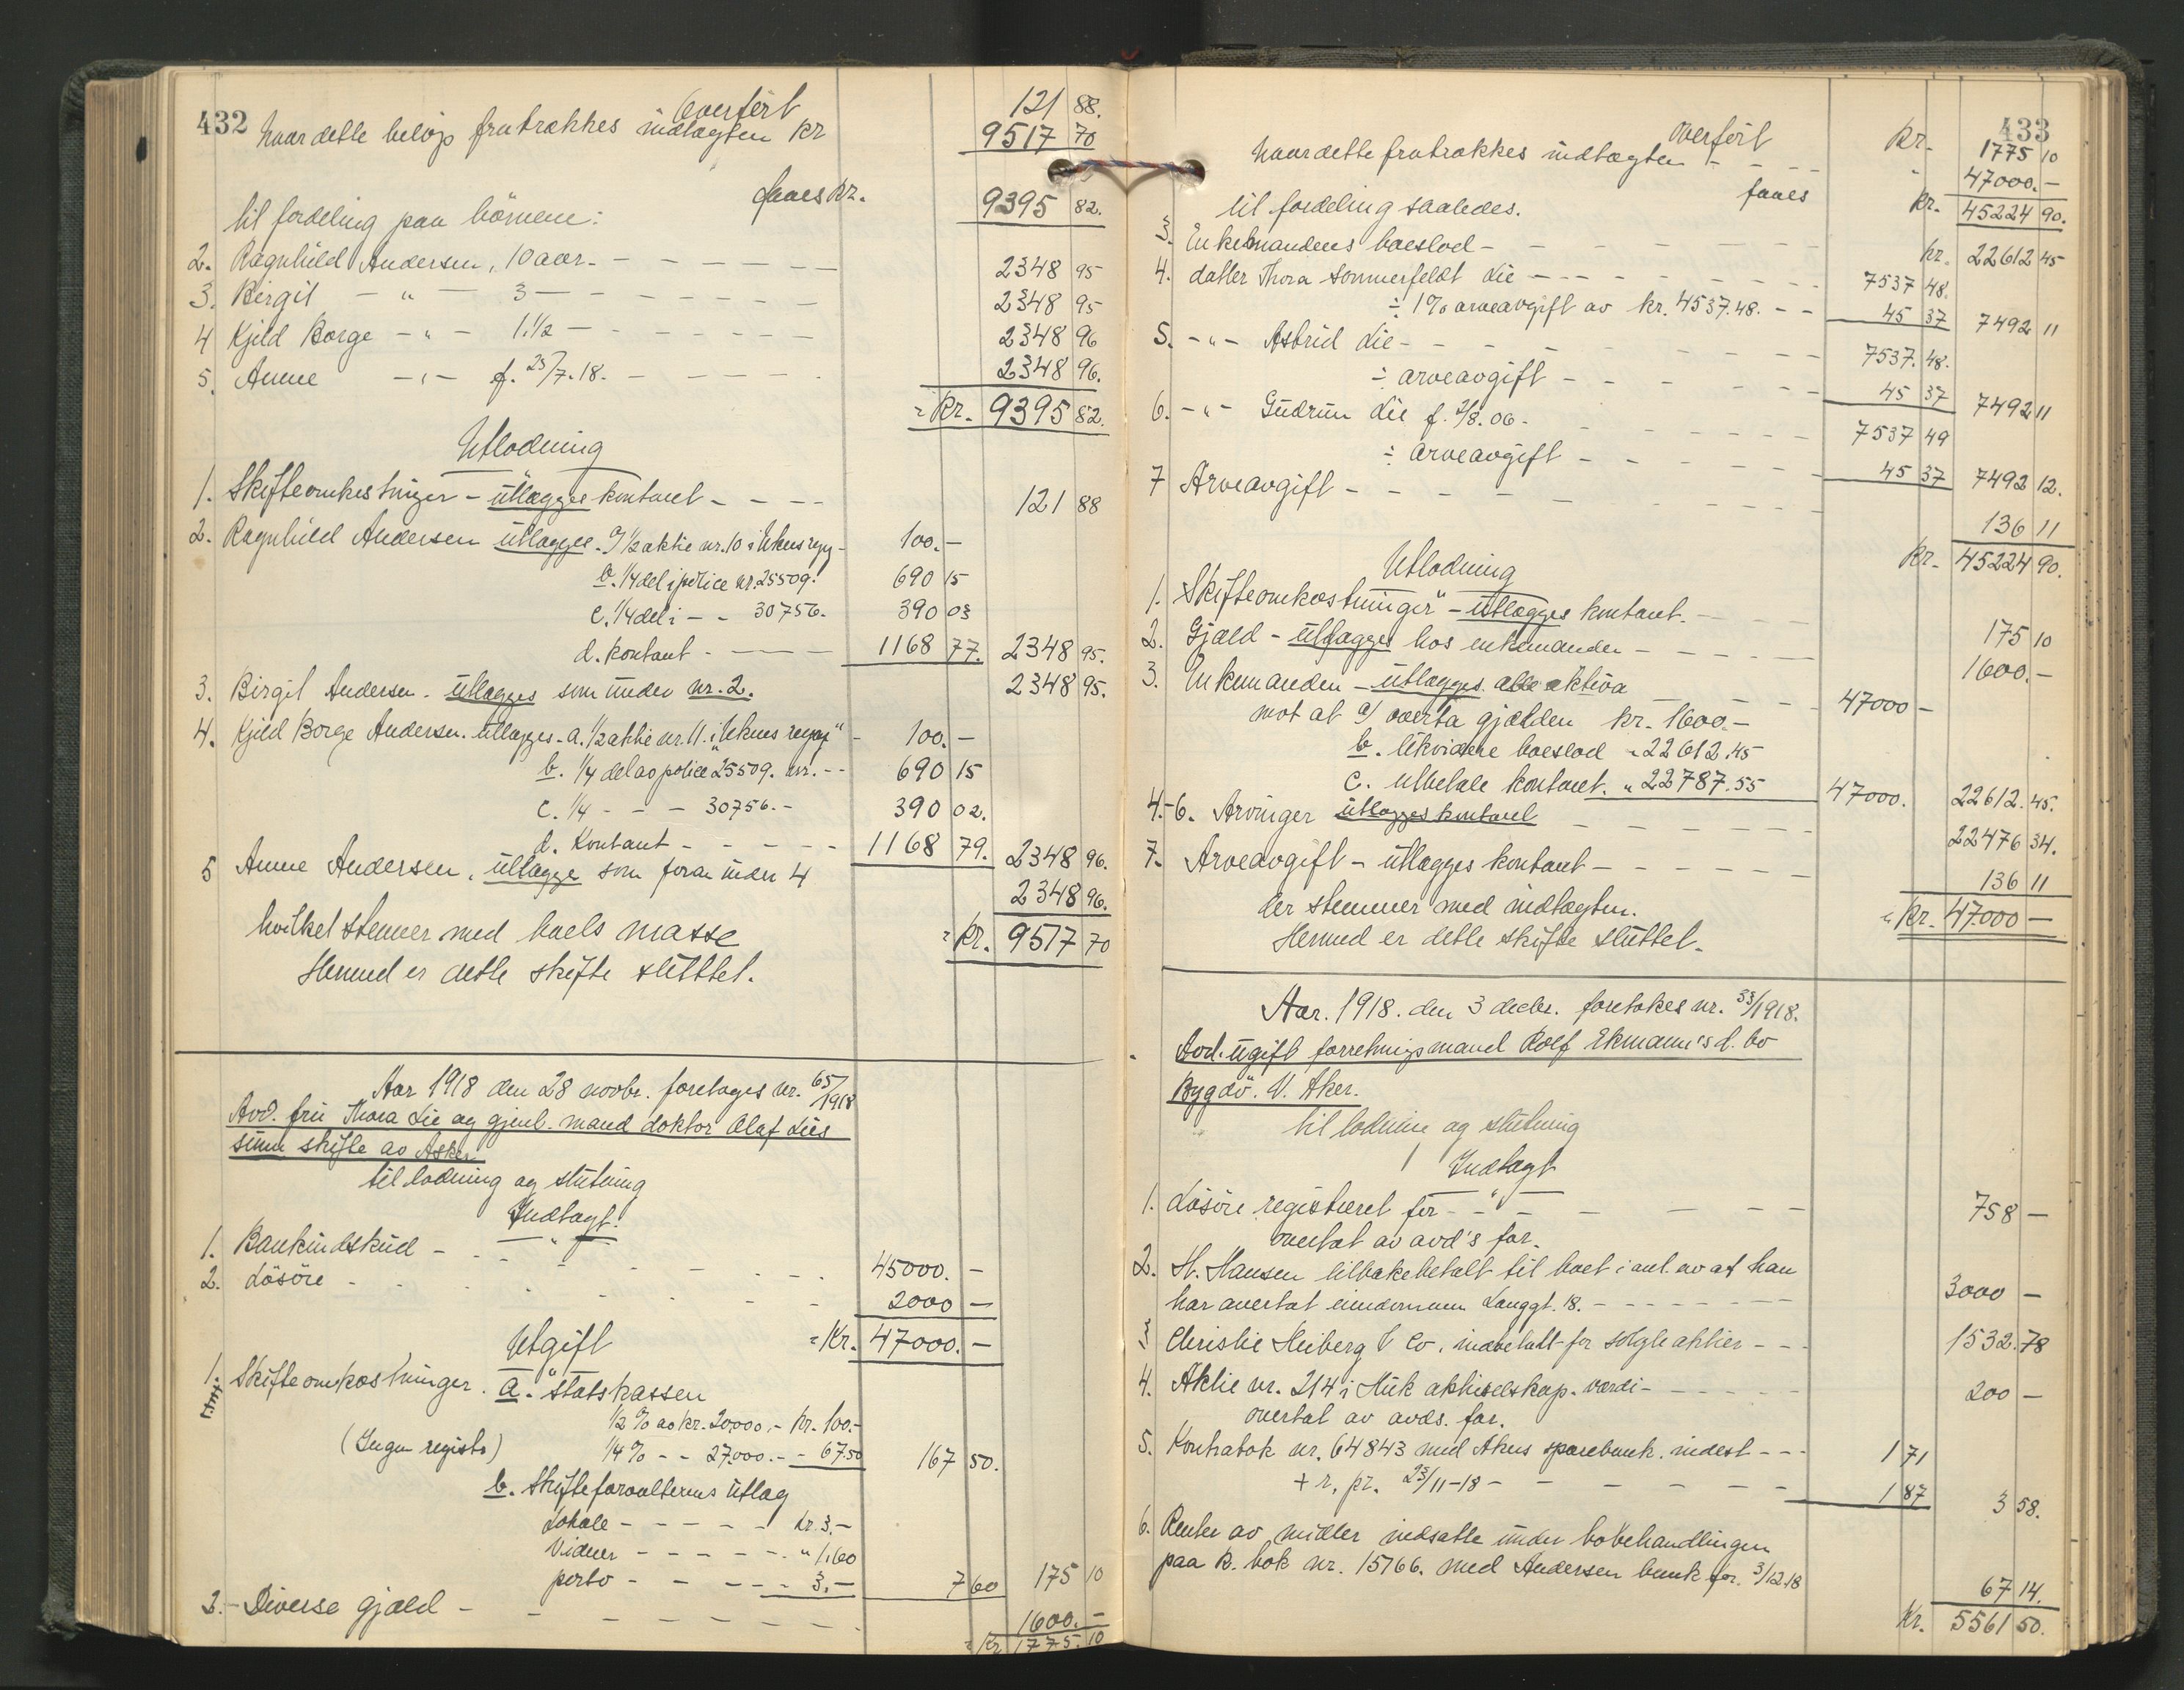 432
Overført 121 88.
Naar dette beløp fratrækkes indtægten kr 9517 70
faaes kr. 9395 82.
til fordeling paa børnene:
2. Ragnhild Andersen, 10 aar. - - - - - - 2348 95
3. Birgit - " - 3 - - - - - - - 2348 95
4 Kjeld Borge - " - 1.1/2 - - - - - - 2348 96
5. Anne - " - f. 25/7.18. - - - - - 2348 96.
= kr. 9395 82.
Utlodning
1. Skifteomkostninger - utlægges kontant - - - - 121 88
2. Ragnhild Andersen utlægges - a/ 1/2 aktie nr. 10 i 100. -
b. 1/4 del i police nr. 25509. 690 15
c. 1/4 del i - - 30756. 390 03
d. kontant - - - - 1168 77. 2348 95.
3. Birgit Andersen - utlægges som under nr. 2. 2348 95.
4. Kjeld Borge Andersen. utlægges - a. 1/2 aktie nr. 11. i 100. -
b. 1/4 del av police 25509. nr. - - 690 15
c. 1/4 - - - 30756. - 390 02.
d. Kontant - - - - - 1168 79. 2348 96.
5 Anne Andersen, utlægges som foran under 4 2348 96.
hvilket stemmer med boets masse = kr. 9517 70
Hermed er dette skifte sluttet.
Aar 1918 den 28 novbr. foretages nr. 65/1918
Avd. fru Thora Lie og gjenl. mand doktor Olaf Lies
skifte av Asker
til lodning og slutning
Indtægt.
1. Bankindskud - - - - - - 45000. -
2. Løsøre - - - - - - 2000 -
= Kr. 47000. -
Utgift
1. Skifteomkostninger. a. Statskassen
1/2 % av kr. 20,000. - kr. 100. -
(Ingen registr) 1/4 % - - 27.000. - - 67.50 167 50.
b. Skifteforvalterens utlæg
Lokale - - - - - kr. 3. -
Vidner - - - - - - " 1.60
porto - - - - - 3. - 7 60 175 10
2. - Diverse gjæld - - - - - - - 1600. -
= Kr 1775. 10
433
Overført kr. 1775 10
Naar dette fratrækkes indtægten - - - " 47000. -
faaes kr. 45224 90.
til fordeling saaledes.
3. Enkemandens boeslod - - - - - - kr. 22612 45
4. datter Thora Sommerfeldt Lie - - - - - - 7537 48.
÷ 1% arveavgift av kr. 4537.48. - - 45 37 7492 11
5. - " - Astrid Lie - - - - - - - 7537. 48.
÷ arveavgift - - - - - 45 37 7492 11
6. - " - Gudrun Lie f. 2/8.06. - - - - - 7537 49
÷ arveavgift - - - - - 45 37 7492 12.
7 Arveavgift - - - - - - - - 136 11
kr. 45224 90.
Utlodning
1. Skifteomkostninger - utlægges kontant. - - - 175 10
2. Gjæld - utlægges hos enkemanden - - - - 1600. -
3. Enkemanden - utlægges alle aktiva - - - 47000 -
mot at a/ overta gjælden kr. 1600. -
b. likvidere boeslod " 22612.45
c. utbetale kontant. " 22787.55 47000. 22612. 45.
4-6. Arvinger utlægges kontant - - - - - - 22476 34.
7. Arveavgift - utlægges kontant - - - - - - 136 11
der stemmer med indtægten. " Kr. 47000 -
Hermed er dette skifte sluttet.
Aar. 1918. den 3 decbr. foretokes nr. 33/1918.
Avd. ugift forretningsmand Rolf Ekmann's d. bo
Bygdø. V. Aker.
til lodning og slutning
Indtægt
1. Løsøre registreret for - - " - - - - - 758 -
overtat av avd's far.
2. H. Hansen tilbakebetalt til boet i anl. av at han
har overtat eiendommen Langgt. 18. - - - - - - - 3000 -
3 Christie Heiberg & Co. indbetalt for solgte aktier - - - 1532. 78
4. Aktie nr. 214 i Huk aktieselskap. værdi - - - - - 200 -
overtat av avds. far.
5. Kontrabok nr. 64843 med Akers sparebank. indest - - - 1 71
+ r. pr. 23/11-18 - - - - - - 1 87 3 58.
6. Renter av midler indsatte under bobehandlingen
paa B. bok nr. 15766. med Andersen bank for. 3/12.18 67 14.
Kr. 5561 50.